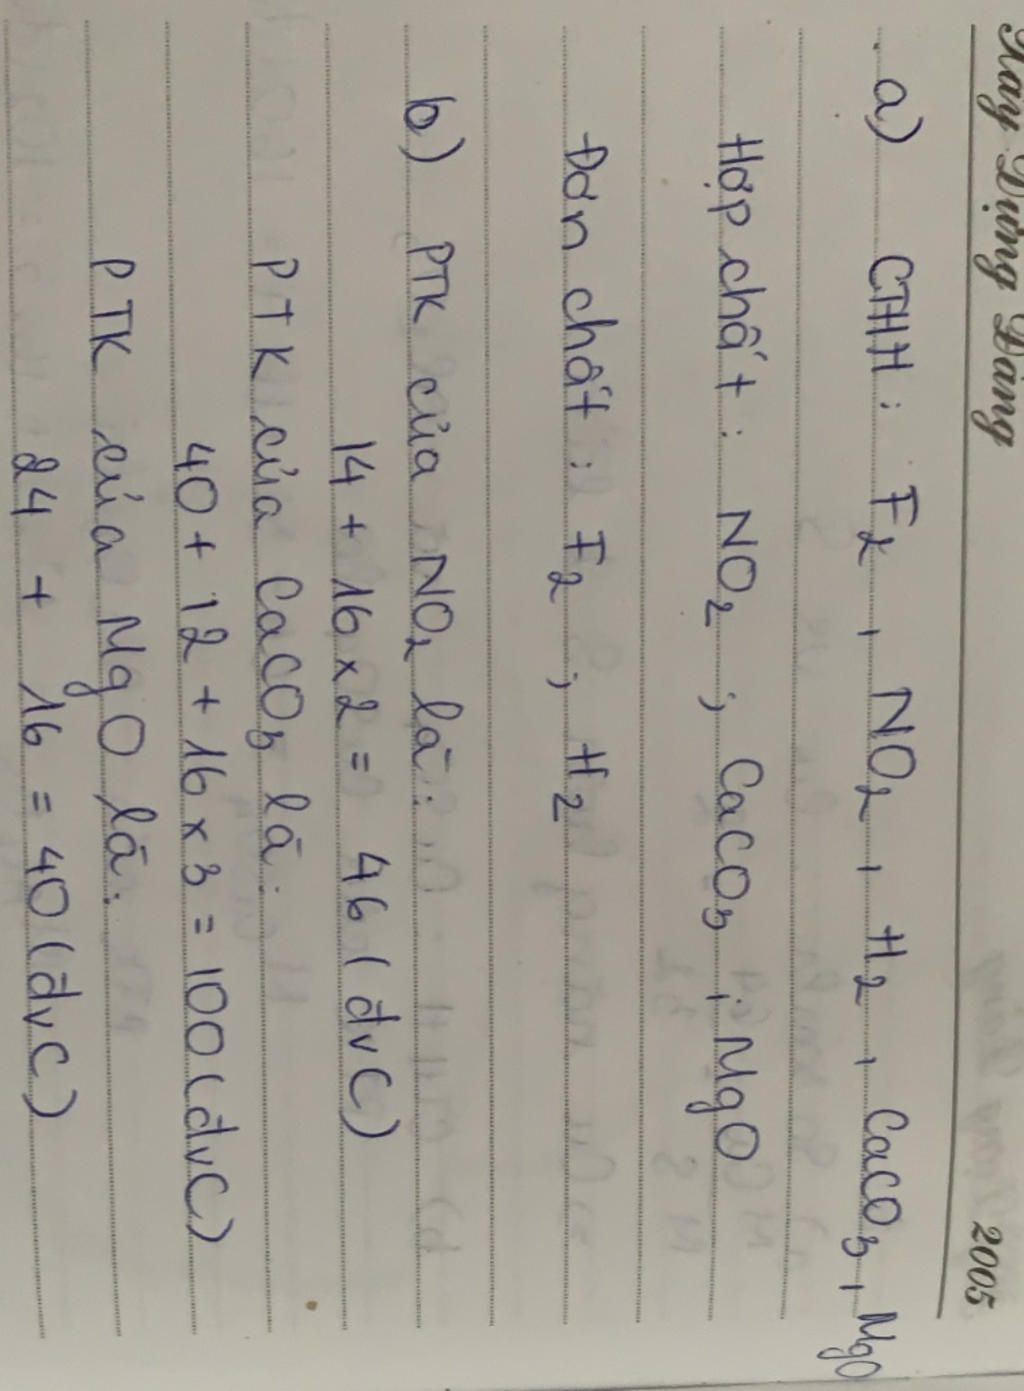 Xây Dựng Đảng 2005
a) CTHH: F2, NO2, H2, CaCO3, MgO
Hợp chất: NO2; CaCO3; MgO
Đơn chất: F2; H2
b) PTK của NO2 là:
14 + 16 x 2 = 46 (đvC)
PTK của CaCO3 là:
40 + 12 + 16 x 3 = 100 (đvC)
PTK của MgO là:
24 + 16 = 40 (đvC)